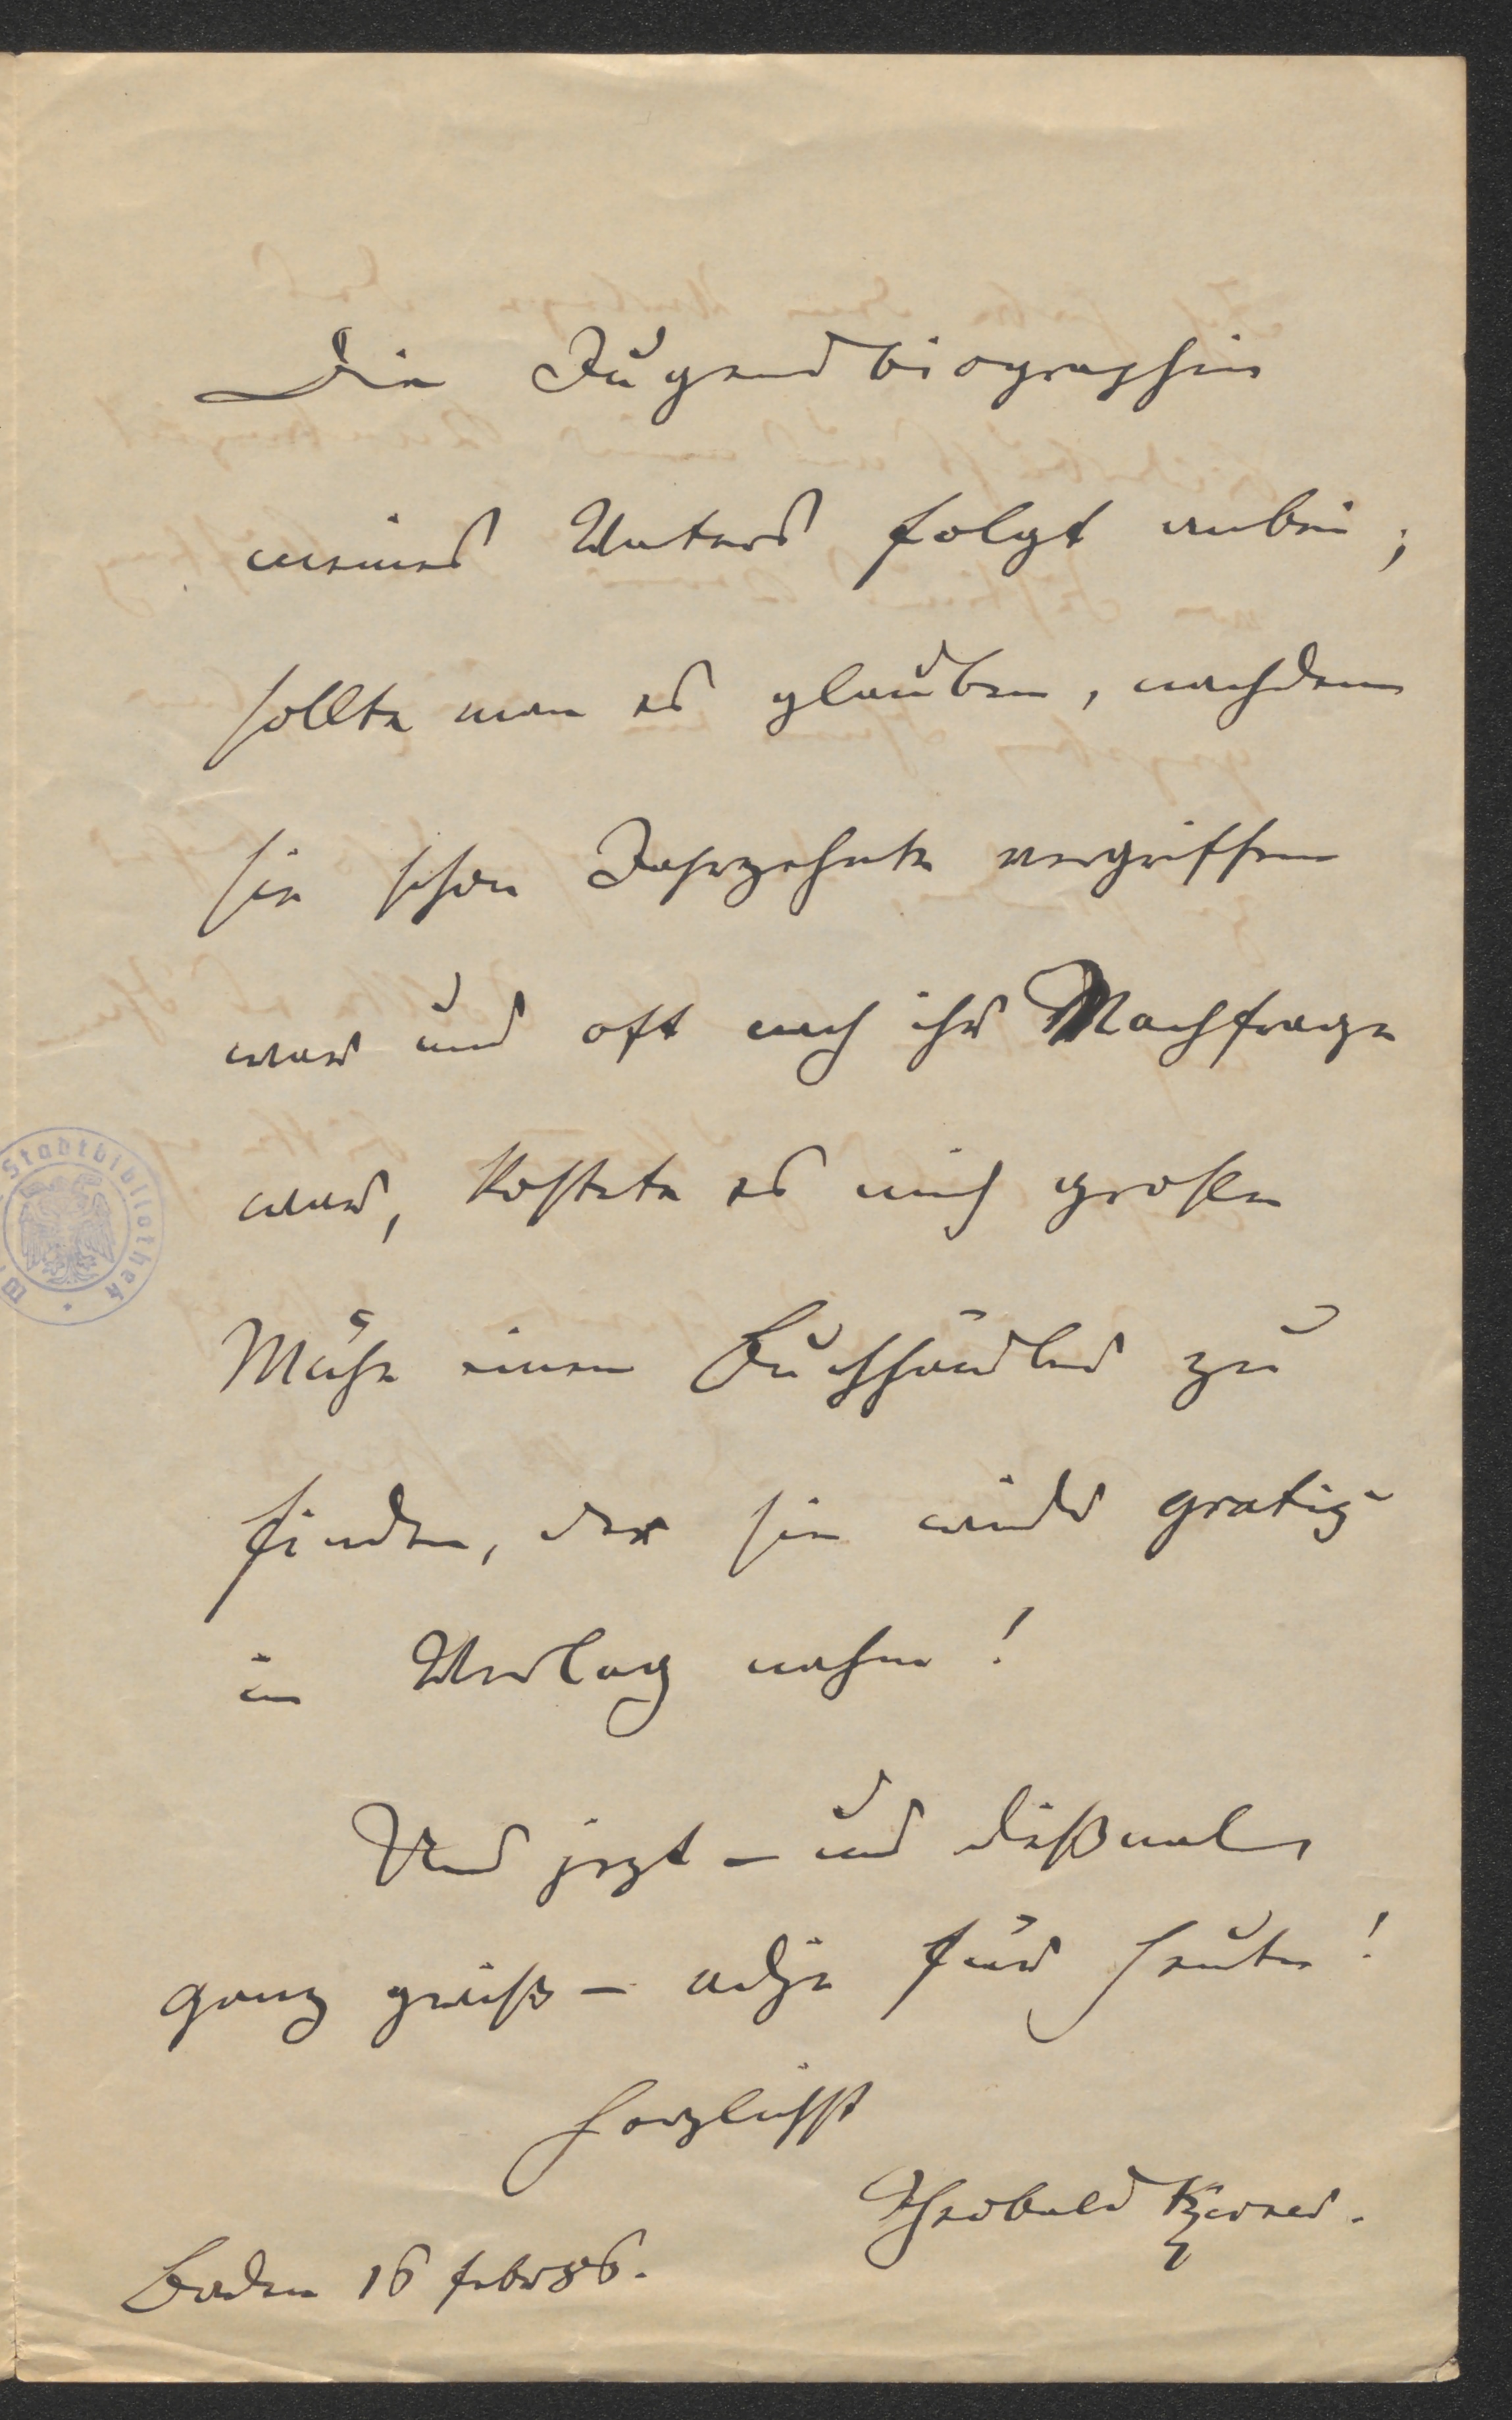 Die Jugendbiographie
meines Vaters folgt anbei;
sollte man es glauben, nachdem
sie schon Jahrzehnte vergriffen
war und oft nach ihr Nachfrage
war, kostete es mich große
Mühe einen Buchhändler zu
finden, der sie wieder gratis
in Verlag nahm!
Und jezt – und dißmal
ganz gewiß – adje für heute!
herzlichst
Theobald Kerner.
Baden 16 Febr 86.
Stadtbibliothek